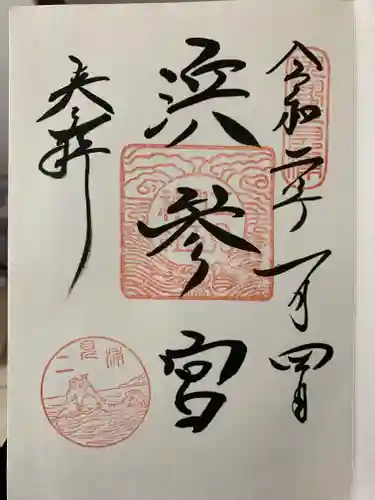 令和二年一月四日
浜参宮
奉拝
二見浦